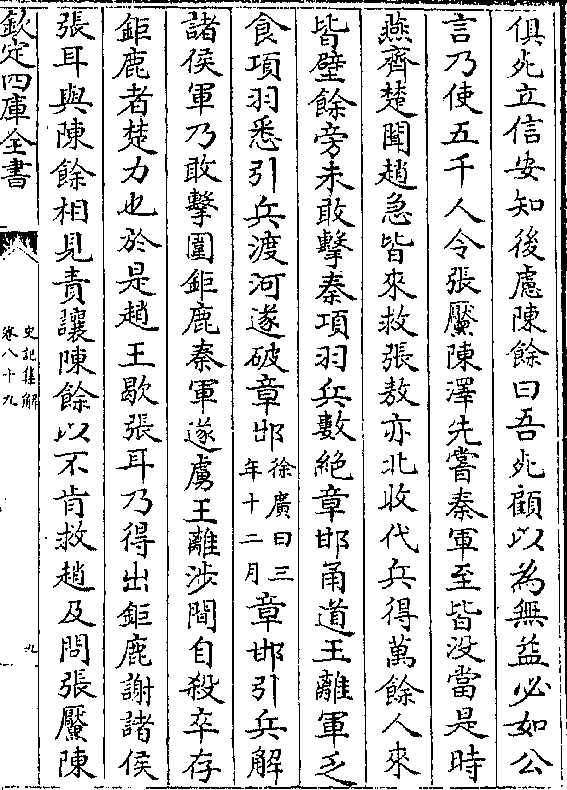 俱死立信安知後慮陳餘曰吾死顧以為無益必如公
言乃使五千人令張黶陳澤先嘗秦軍至皆没當是時
燕齊楚聞趙急皆來救張敖亦北收代兵得萬餘人來
皆壁餘旁未敢擊秦項羽兵數絶章邯甬道王離軍乏
食項羽悉引兵渡河遂破章邯徐廣曰三年十二月章邯引兵解
諸侯軍乃敢擊圍鉅鹿秦軍遂虜王離涉間自殺卒存
鉅鹿者楚力也於是趙王歇張耳乃得出鉅鹿謝諸侯
張耳與陳餘相見責讓陳餘以不肯救趙及問張黶陳
欽定四庫全書
史記集解
卷八十九
九